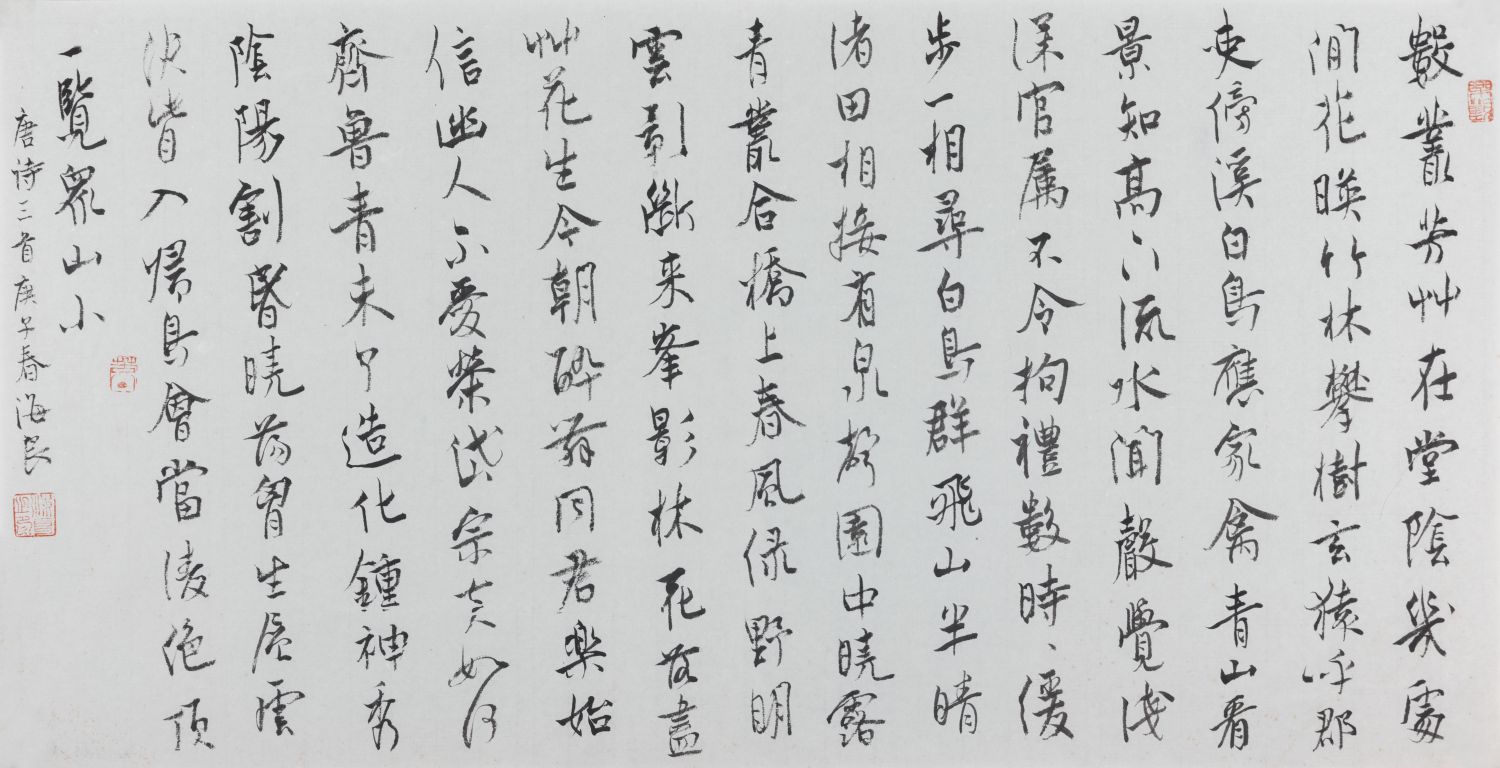 數叢芳艸在堂陰幾處
閒花映竹林攀樹玄猿呼郡
吏傍溪白鳥應家禽青山看
景知高下流水聞聲覺淺
深官屬不令拘禮數時、緩
步一相尋白鳥群飛山半晴
渚田相接有泉聲園中曉露
青叢合橋上春風緑野明
雲影斷来峯影林花落盡
艸花生今朝醉舞同君樂始
信幽人不愛榮岱宗夫如何
齊魯青未了造化鍾神秀
陰陽割昏曉荡胷生层雲
决眥入歸鳥會當凌絕頂
一覽眾山小
唐诗三首庚子春海